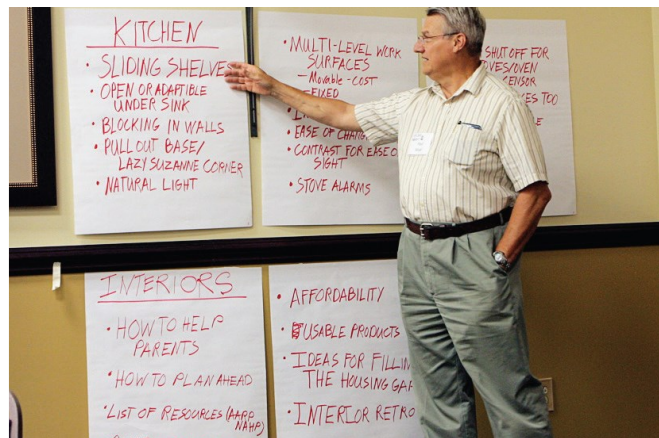 KITCHEN
• SLIDING SHELVE
• OPEN OR ADAPTIBLE
UNDER SINK
• BLOCKING IN WALLS
• PULL OUT BASE/
LAZY SUZANNE CORNER
• NATURAL LIGHT
• MULTI-LEVEL WORK
SURFACES
- Movable - COST
- FIXED
• EASE OF CHANG
• CONTRAST FOR EASE O
SIGHT
• STOVE ALARMS
SHUT OFF FOR
VES/OVEN
ENSOR
KES TOO
INTERIORS
• HOW TO HELP
PARENTS
• HOW TO PLAN AHEAD
• LIST OF RESOURCES (AARP
NAHP)
• AFFORDABILITY
• USABLE PRODUCTS
• IDEAS FOR FILLIN
THE HOUSING GAP
• INTERIOR RETRO